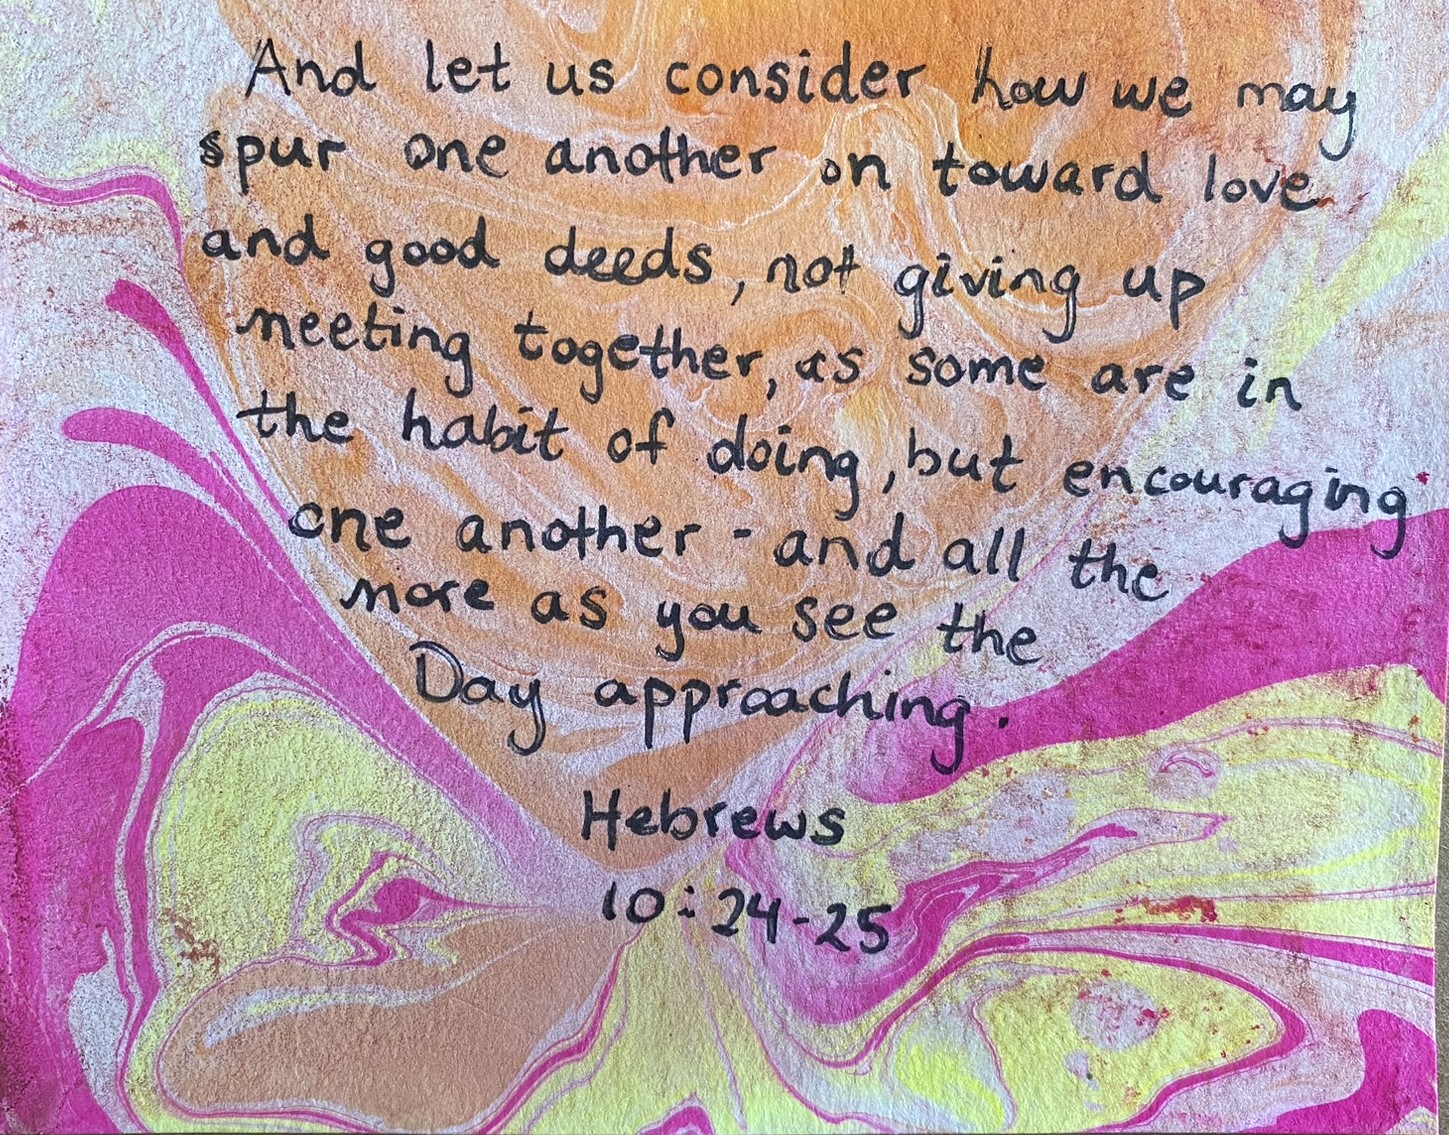 And let us consider how we may
spur one another on toward love
and good deeds, not giving up
meeting together, as some are in
the habit of doing, but encouraging
one another - and all the
more as you see the
Day approaching.
Hebrews
10:24-25